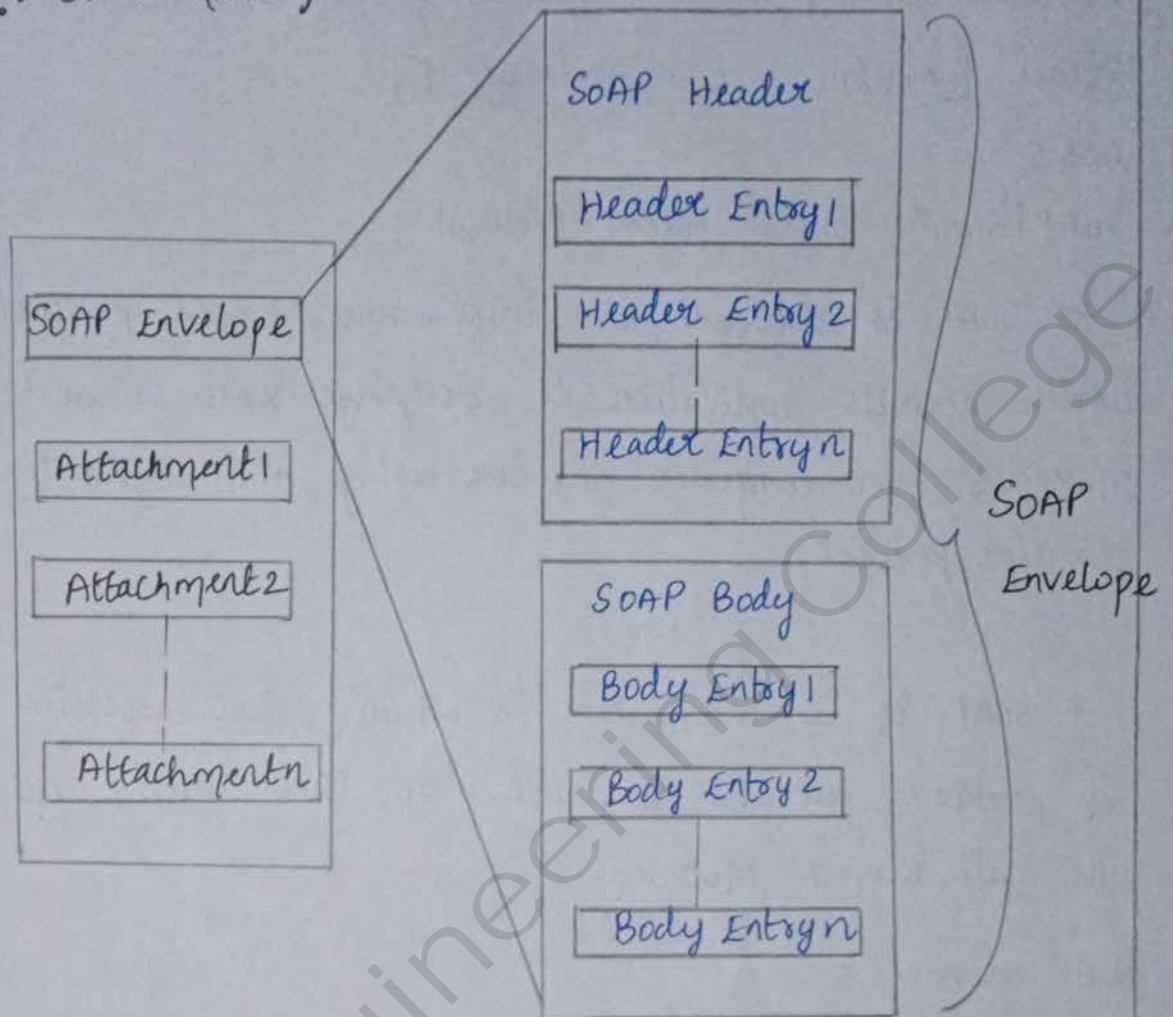 SOAP Envelope
Attachment1
Attachment2
Attachmentn
SOAP Header
Header Entry1
Header Entry2
Header Entryn
SOAP Body
Body Entry1
Body Entry2
Body Entryn
SOAP
Envelope
ineering College